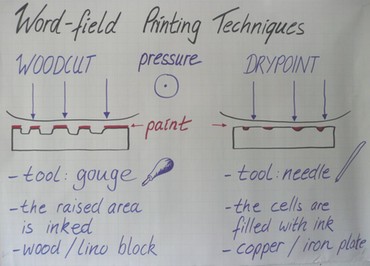 Word-field Printing Techniques
WOODCUT pressure DRYPOINT
paint
- tool: gouge
- the raised area
is inked
- wood / lino block
- tool: needle
- the cells are
filled with ink
- copper / iron plate